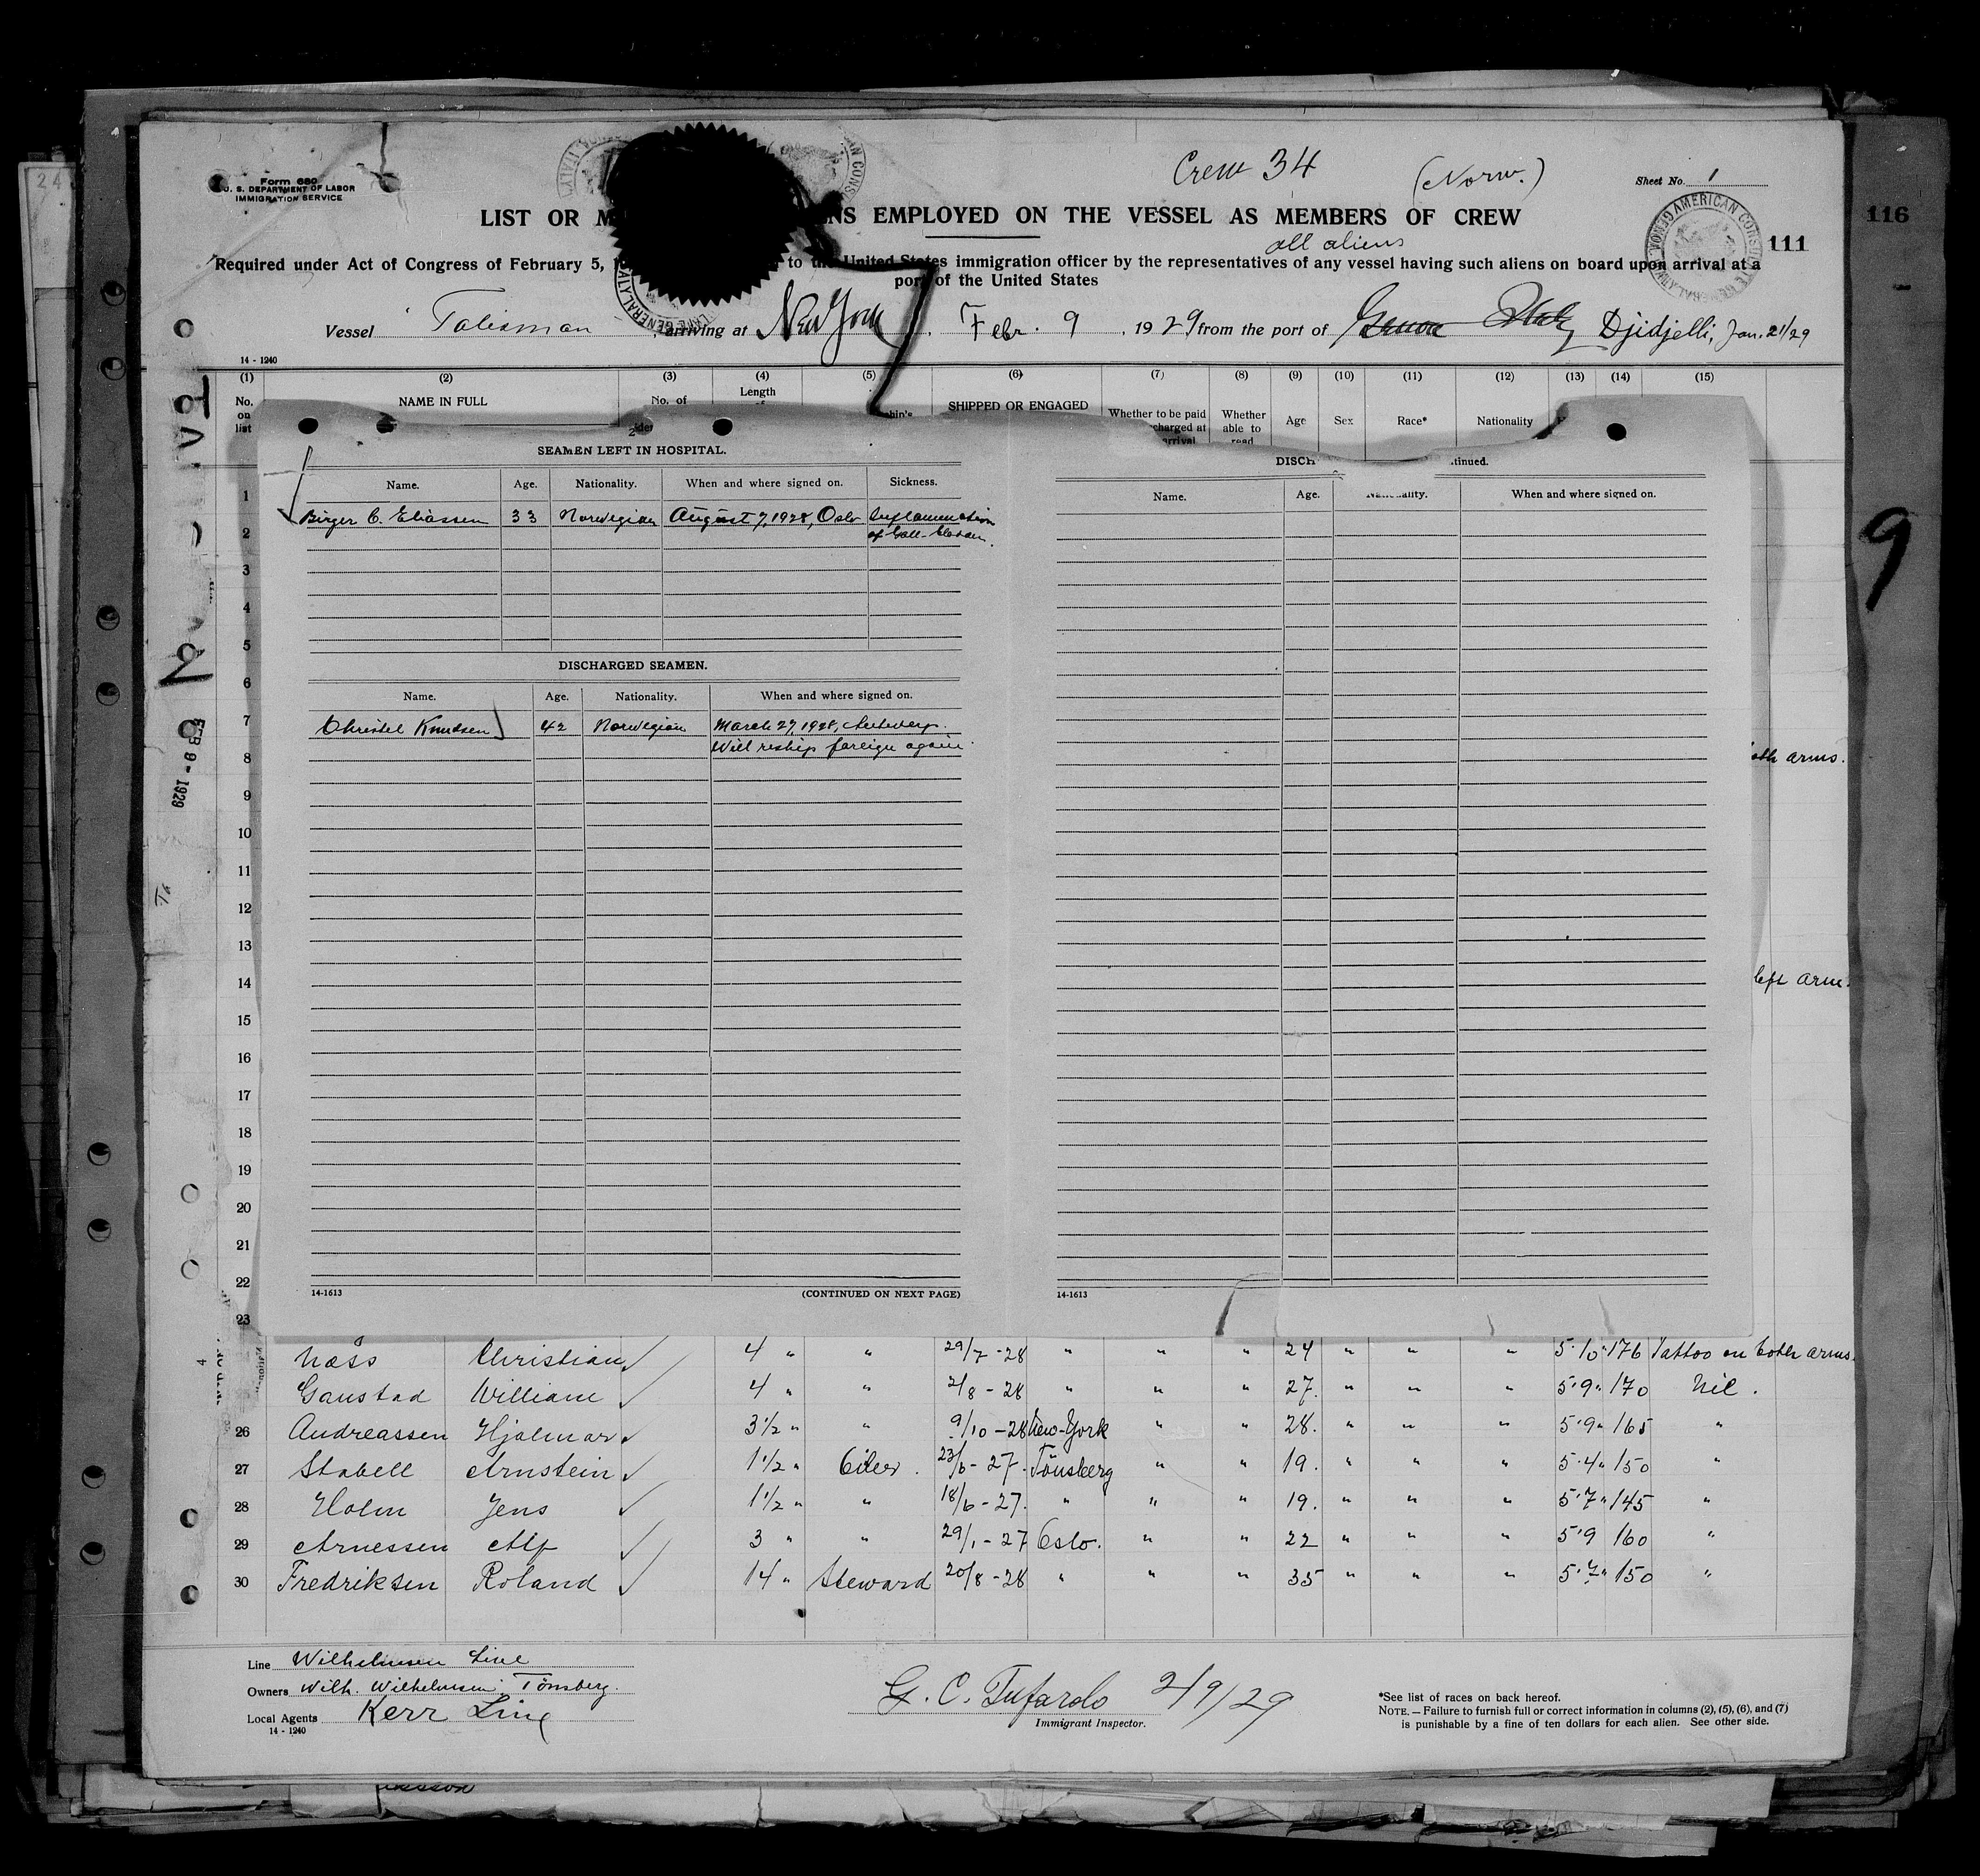 24
116
Form 680
U. S. DEPARTMENT OF LABOR
IMMIGRATION SERVICE
Crew 34 (Norw.) Sheet No. 1
LIST OR M NS EMPLOYED ON THE VESSEL AS MEMBERS OF CREW
111
all aliens
Required under Act of Congress of February 5, to the United States immigration officer by the representatives of any vessel having such aliens on board upon arrival at a
port of the United States
Vessel Talisman, arriving at New York, Febr. 9, 1929 from the port of Genoa Italy Djidjelli, Jan. 21/29
14 - 1240
(1) (2) (3) (4) (5) (6) (7) (8) (9) (10) (11) (12) (13) (14) (15)
No. on list NAME IN FULL No. of Length SHIPPED OR ENGAGED Whether to be paid Whether able to read Age Sex Race* Nationality
SEAMEN LEFT IN HOSPITAL.
Name. Age. Nationality. When and where signed on. Sickness.
Birger C. Eliassen 33 Norwegian August 7, 1928, Oslo Inflammation
of Gall-
DISCHARGED SEAMEN.
Name. Age. Nationality. When and where signed on.
Christel Knudsen 42 Norwegian March 27, 1928, Antwerp.
Will reship foreign again.
14-1613 (CONTINUED ON NEXT PAGE)
DISCH tinued.
Name. Age. Nationality. When and where signed on.
14-1613
1
2
3
4
5
6
7
8
9
10
11
12
13
14
15
16
17
18
19
20
21
22
23
FEB 9 - 1929
9
oth arms.
left arm.
Næss Christian 4 " " 29/7 - 28 " " " 24 " " " 5'10" 176 Tattoo on both arms.
Ganstad William 4 " " 2/8 - 28 " " " 27. " " " 5'9" 170 Nil.
26 Andreassen Hjalmar 3½ " " 9/10 - 28 New-York " " 28. " " " 5'9" 165 "
27 Stabell Arnstein 1½ " Oiler. 23/6 - 27. Tönsberg " " 19. " " " 5'4" 150 "
28 Holm Jens 1½ " " 18/6 - 27. " " " 19. " " " 5'7" 145 "
29 Arnessen Alf 3 " " 29/1 - 27 Oslo. " " 22 " " " 5'9 160 "
30 Fredriksen Roland 14 " Steward 20/8 - 28 " " " 35 " " " 5'7" 150 "
Line Wilhelmsen Line
Owners Wilh. Wilhelmsen, Tönsberg.
Local Agents Kerr Line
14 - 1240
G. C. Tufarolo 2/9/29
Immigrant Inspector.
*See list of races on back hereof.
NOTE.—Failure to furnish full or correct information in columns (2), (5), (6), and (7)
is punishable by a fine of ten dollars for each alien. See other side.